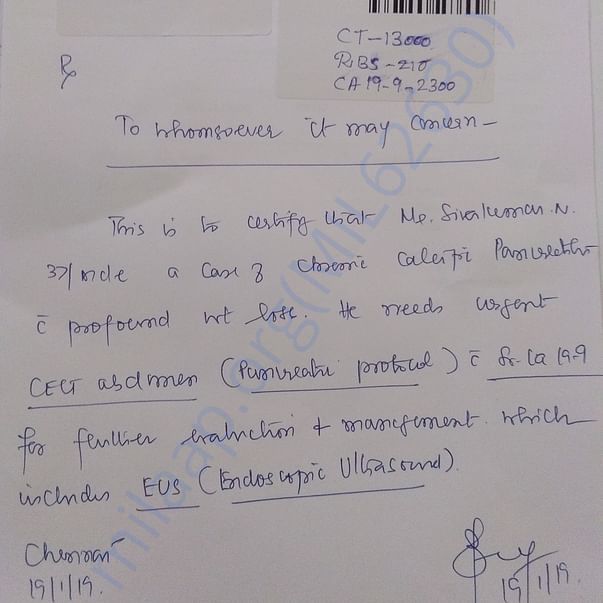 CT-13000
RBS-210
CA 19-9-2300
Rx
To whomsoever it may concern-
This is to certify that Mr. Sivakumar. N.
37/male a case of chronic calcific Pancreatitis
c̄ profound wt loss. He needs urgent
CECT abdomen (Pancreatic protocol) c̄ Sr. Ca 19.9
for further evaluation & management. which
includes EUS (Endoscopic Ultrasound).
Chennai
19/1/19.
19/1/19.
milaap.org(MIL62630)